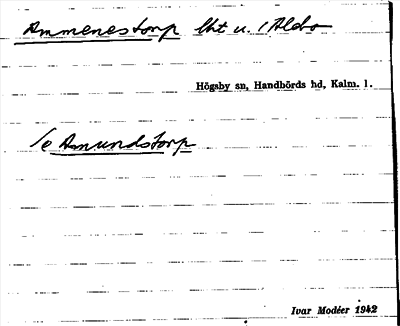 Ammenestorp lht u. 1 Aleбo
Högsby sn, Handbörds hd, Kalm. l.
Se Amundstorp
Ivar Modéer 1942